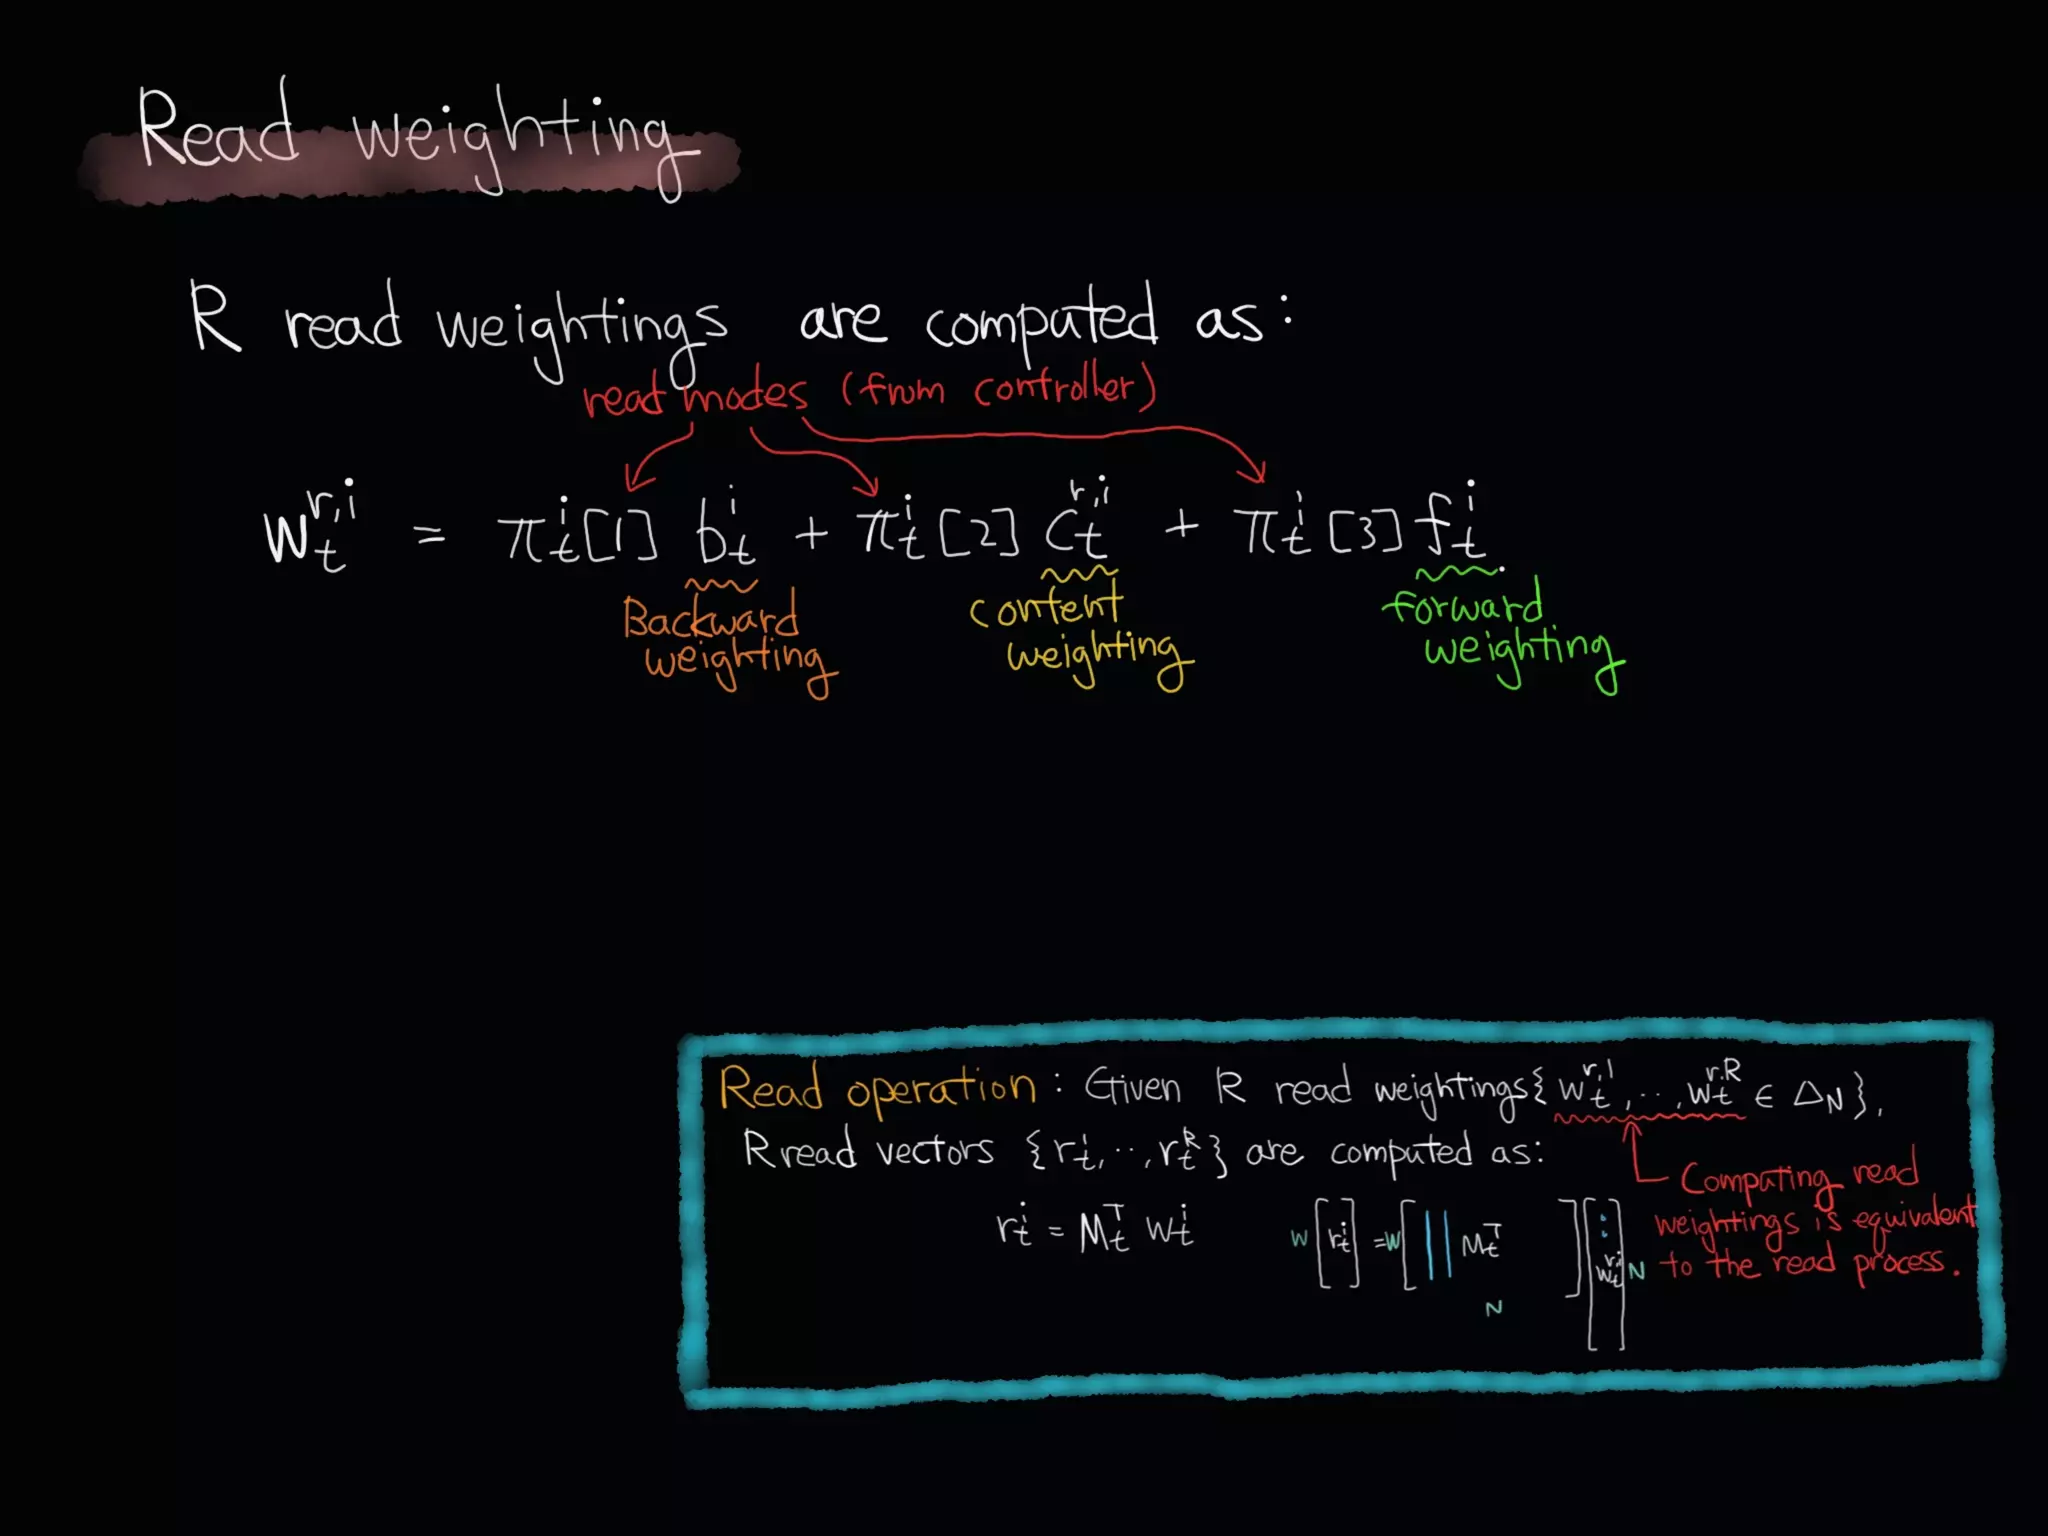 Read weighting
R read weightings are computed as:
read modes (from controller)
w_t^{r,i} = π_t^i[1] b_t^i + π_t^i[2] c_t^{r,i} + π_t^i[3] f_t^i.
Backward weighting
content weighting
forward weighting
Read operation: Given R read weightings {w_t^{r,1}, ··, w_t^{r,R} ∈ Δ_N},
R read vectors {r_t^1, ··, r_t^R} are computed as:
r_t^i = M_t^T w_t^i
W [r_t^i] = W [M_t^T] [: w_t^{r,i}] N
N
Computing read
weightings is equivalent
to the read process.